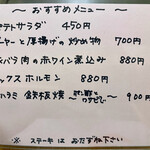 ～ おすすめメニュー ～
ポテトサラダ 450円
ーヤーと厚揚げの炒め物 700円
バラ肉の赤ワイン煮込み 880円
ックスホルモン 880円
ハラミ 鉄板焼 ～ 900円
※ ステーキは おたずね下さい